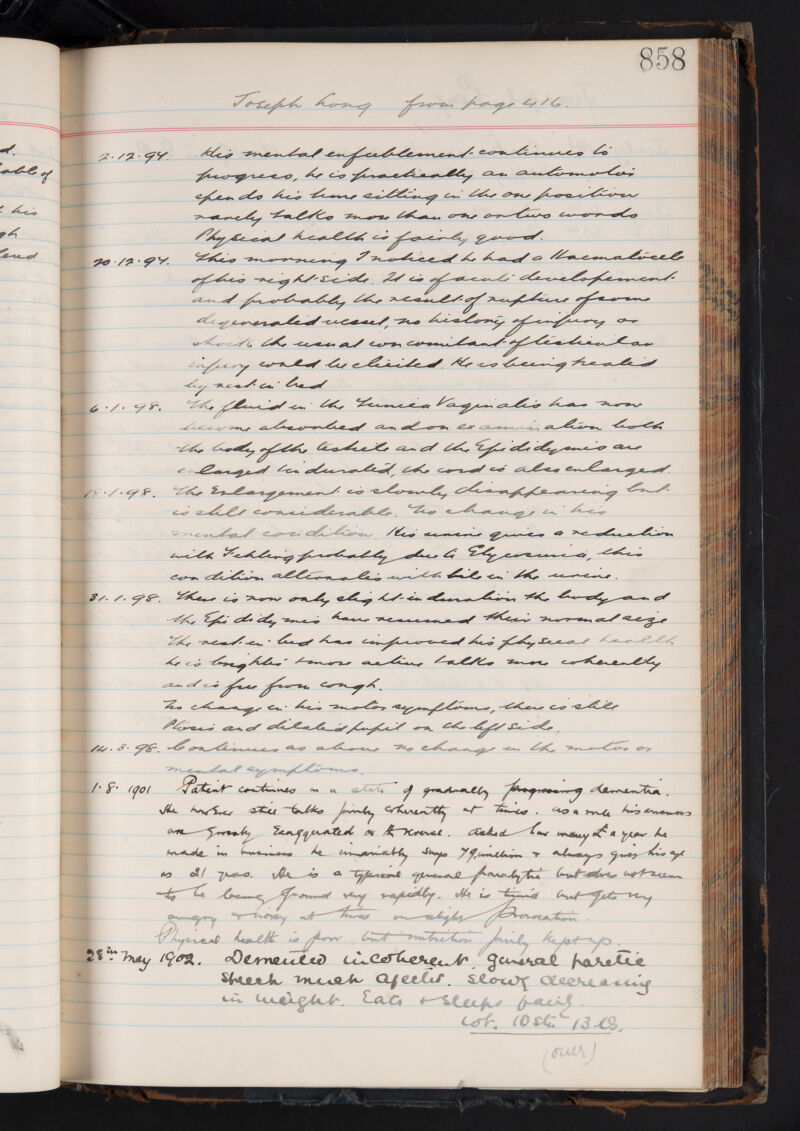 858
Joseph Long from page 416.
2.12.97. His mental enfeeblement continues to
progress, he is practically an automaton
spends his time sitting in the one position
rarely talks more than one or two words
Physical health is fairly good.
20.12.97. This morning I noticed he had a Haematocele
of his right side. It is of acute developement
and probably the result of rupture of some
degenerated vessel, no history of injury or
shock the usual concomitant of testicular
injury could be elicited. He is being treated
by rest in bed
6.1.98. The fluid in the Tunica Vaginalis has now
become absorbed and on examination both
the body of the testicle and the Epididymis are
enlarged & indurated, the cord is also enlarged.
18.1.98. The Enlargement is slowly disappearing but
is still considerable. No change in his
mental condition. His urine gives a reduction
with Fehling probably due to Glycosuria, this
condition alternates with bile in the urine.
31.1.98. There is now only slight induration the body and
the Epididymis have resumed their normal size
The rest in bed has improved his physical health
he is brighter & more active talks more coherently
and is free from cough.
No change in his motor symptoms, there is still
Ptosis and dilated pupil on the left side.
14.3.98. Continues as above no change in the motor or
mental symptoms.
1.8.1901 Patient continues in a state of gradually progressing dementia.
He however still talks fairly coherently at times. as a rule his answers
are grossly Exaggerated or the reverse. Asked how many £ a year he
made in business he invariably says 79 million & always gives his age
as 21 years. He is a typical general paralytic but does not seem
to be losing ground very rapidly. He is timid but gets very
angry & noisy at times on slight provocation.
Physical health is poor but nutrition fairly kept up.
28th May 1902. Demented incoherent general paretic
speech much affected. slowly decreasing
in weight. Eats & sleeps fairly.
wt. 10 st. 13 lb.
(over)